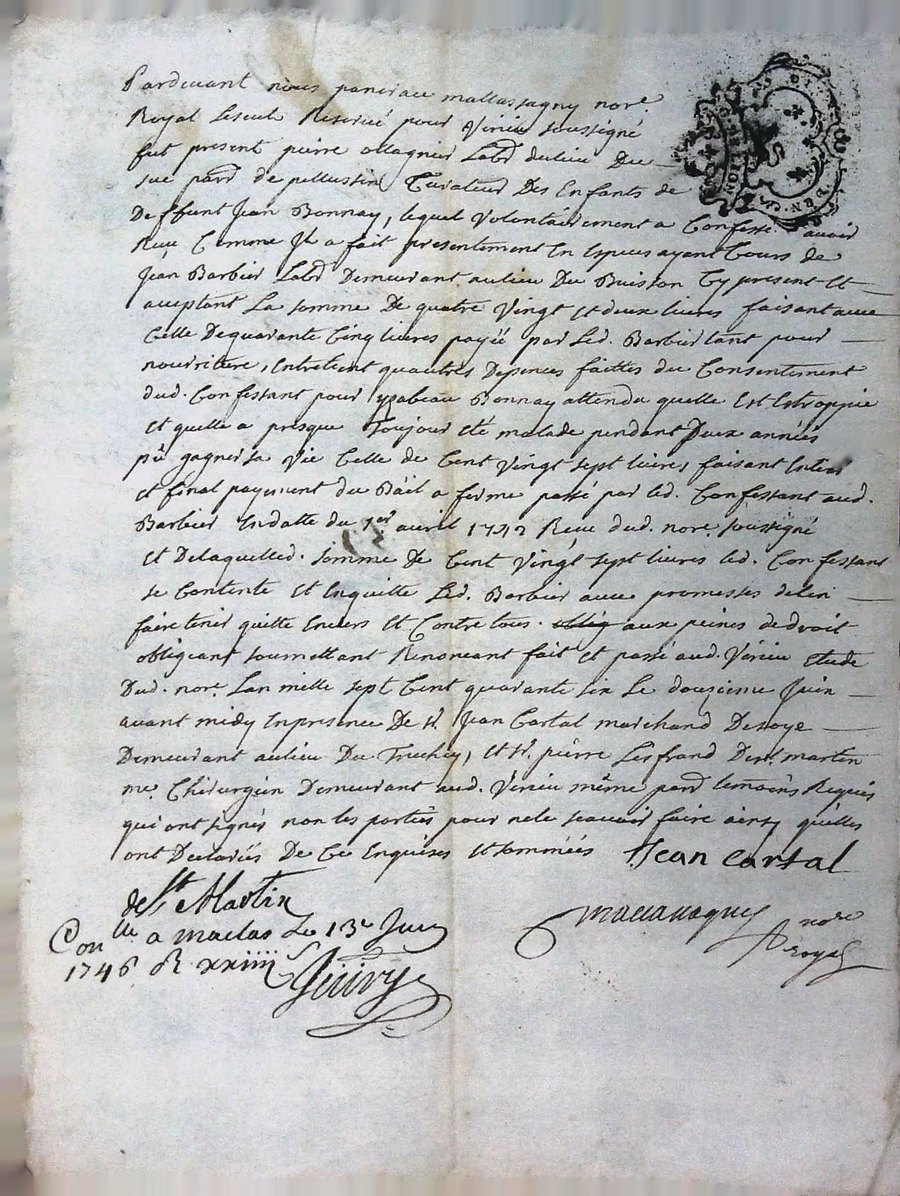 Pardevant nous pancrace mallassagny nore
Royal Seseul Reservé pour Virieu soussigné
fut present pierre ollagnier Labr dulieu Du
sue parr de pellussin Curateur Des Enfants de
Deffunt Jean Bonnay, lequel Volontairement a Confessé avoir
Reçu Comme Il a fait presentement En Especes ayant Cours de
Jean Barbier Labr Demeurant aulieu Du Buisson Cy present Et
aceptant La somme De quatre Vingt Et deux livres faisant avec
Celle Dequarante Cinq livres payée par Led. Barbier tant pour
nourriture, Entretient quautres Depences faittes du Consentement
dud. Confessant pour ysabeau Bonnay attendu quelle Est Estroppiée
Et quelle a presque Toujour Eté malade pendant Deux années
pû gagner sa Vie Celle de Cent Vingt sept livres, faisant Entier
Et final payement du Bail a ferme passé par led. Confessant aud.
Barbier En datte du 1er avril 1742 Receu dud. nore. soussigné
Et Delaquelled. somme De Cent Vingt sept livres led. Confessant
se Contente Et Enquitte Led. Barbier avec promesses delen
faire tenir quitte Envers Et Contre tous. aux peines de droit
obligeant soumettant Renonceant fait Et passé aud. Virieu Etude
Dud. nore. Lan mille sept Cent quarante six Le douzieme Juin
avant midy Enpresence De sr. Jean Cartal marchand Desoye
Demeurant aulieu Du Truchey, Et sr. pierre Lesfrand Dest. martin
me. Chirurgien Demeurant aud. Virieu même parr temoins Requis
qui ont signés non les parties pour ne le scavoir faire ainsy quelles
ont Declarées De Ce Enquises Et sommées Jean cartal
de St Martin
Conlle a maclas Le 13e Juin
1746 R xxiiii s
nore
royal